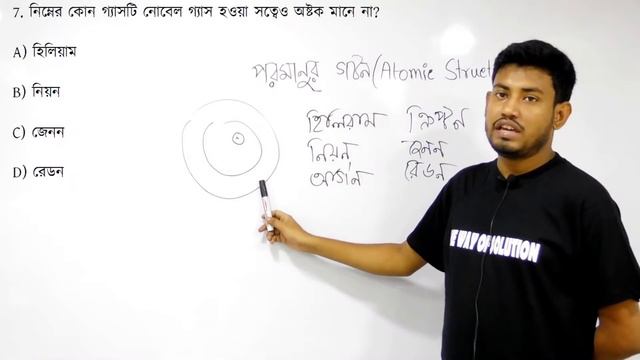 7. নিম্নের কোন গ্যাসটি নোবেল গ্যাস হওয়া সত্বেও অষ্টক মানে না?
A) হিলিয়াম
B) নিয়ন
C) জেনন
D) রেডন
পরমানুর গঠন (Atomic Struct
হিলিয়াম ক্রিপ্টন
নিয়ন জেনন
আর্গন রেডন
E WAY OF SOLUTION